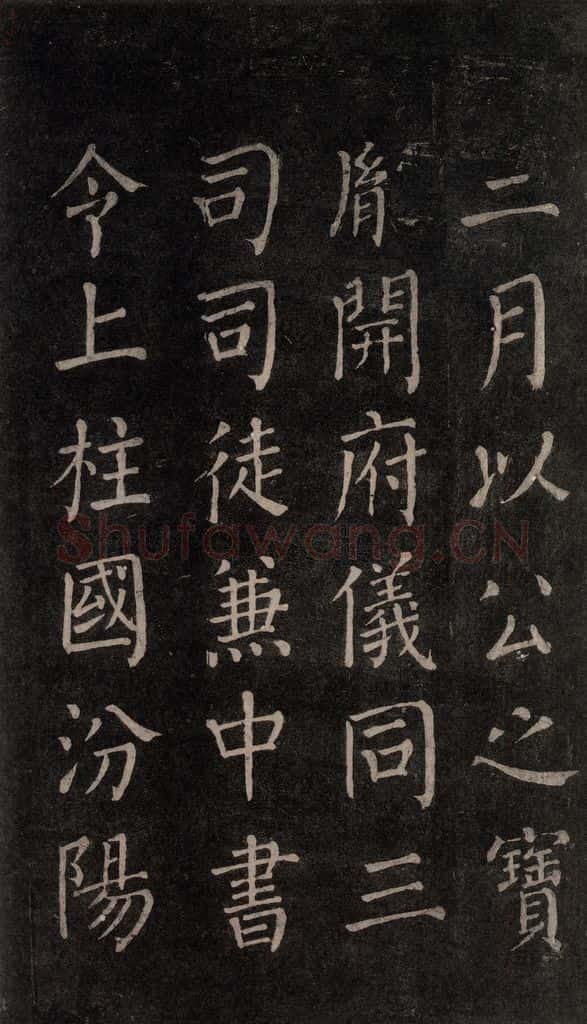 二月以公之寶
胤開府儀同三
司司徒兼中書
令上柱國汾陽
Shufawang.CN